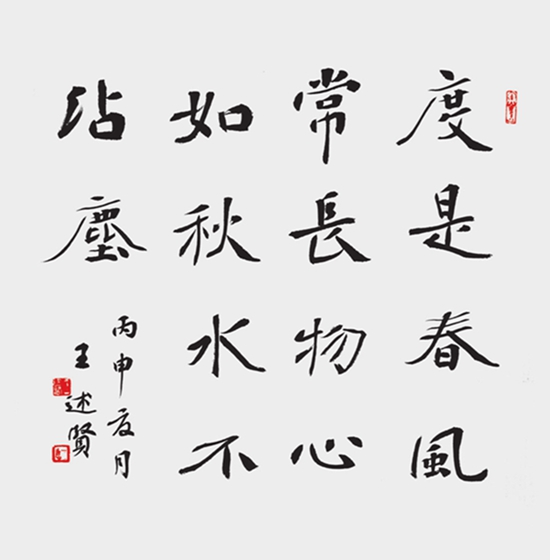 度是春風
常長物心
如秋水不
沾塵
丙申夏月
王述賢